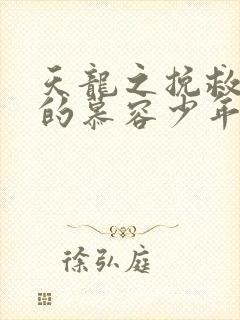 天龍之挽救
的慕容少年
徐弘庭